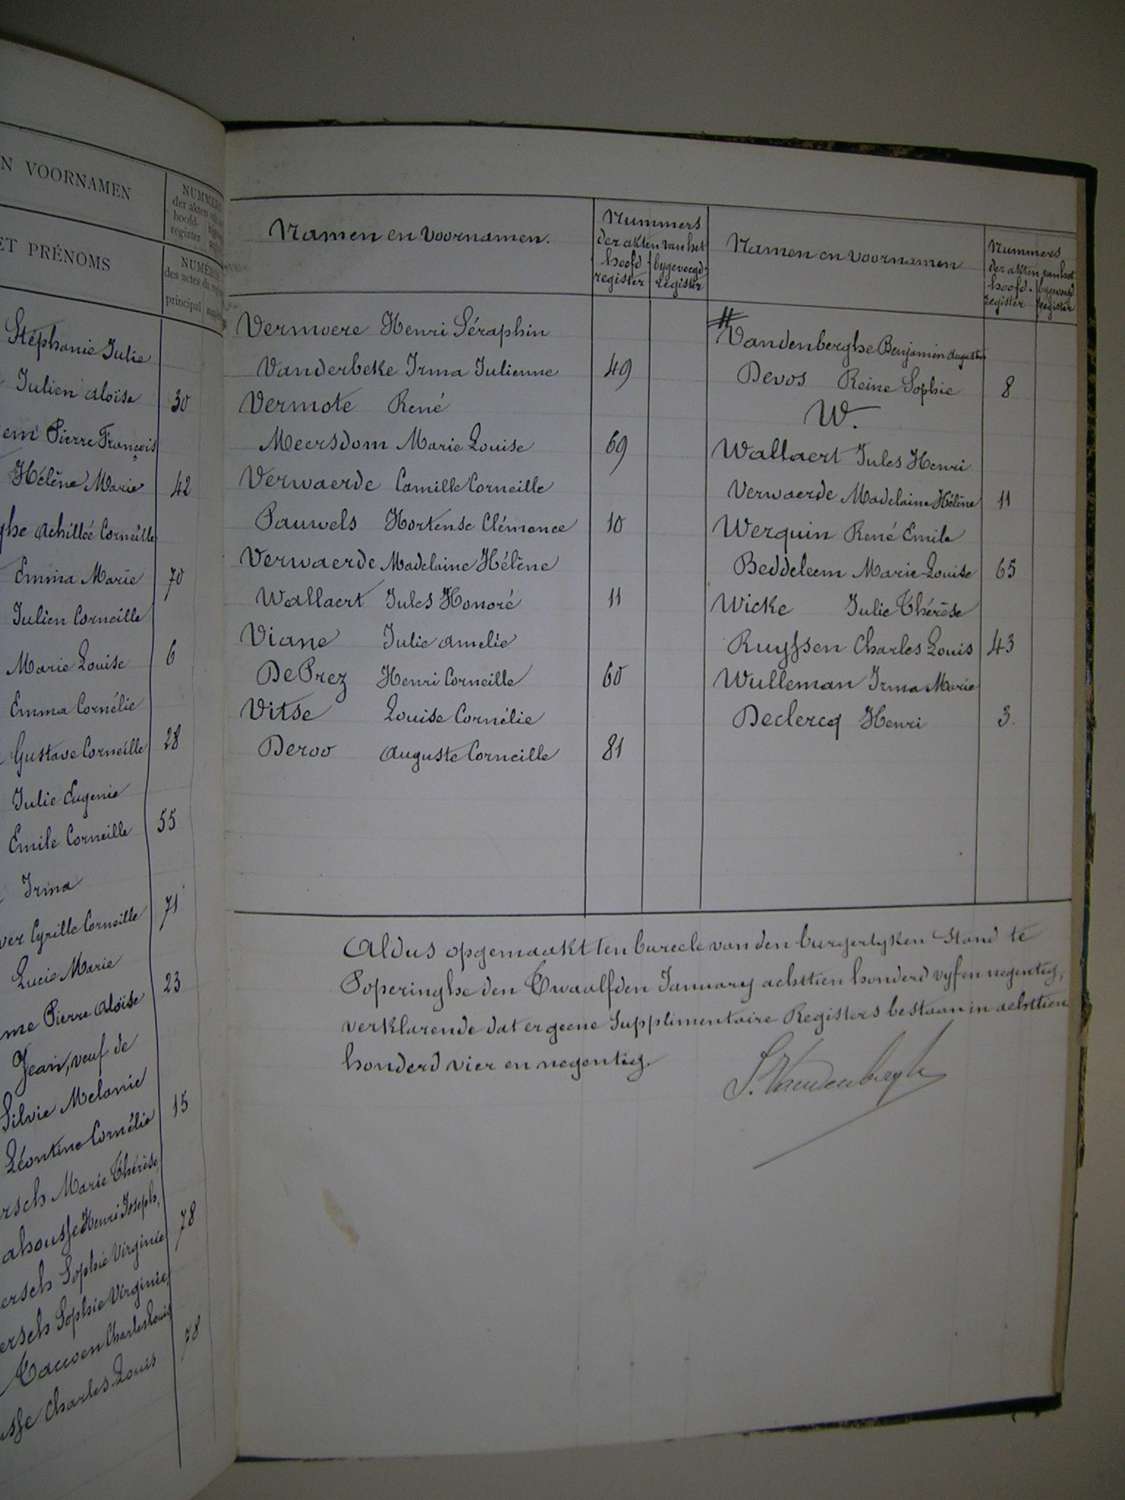 N VOORNAMEN
NUMME
der akten
hoofd-
register
ET PRÉNOMS
NUMÉ
des actes du
principal
Stéphanie Julie
Julien Aloïse 30
em Pierre François
Hélène Marie 42
ghe Achille Corneille
Emma Marie 70
Julien Corneille
Marie Louise 6
Emma Cornélie
Gustave Corneille 28
Julie Eugenie
Emile Corneille 55
Irma
ver Cyrille Corneille 71
Lucie Marie
me Pierre Aloïse 23
Jean, veuf de
Silvie Melanie
Léontine Cornélie 15
rsch Marie Thérèse
ahousse Henri Joseph,
ersch Sophie Virginie 78
ersch Sophie Virginie,
Tauwen Charles Louis
usse Charles Louis 78
Namen en Voornamen.
Nummers
der akten van het
hoofd- bygevoegd-
register register
Vermoere Henri Séraphin
Vanderbeke Irma Julienne 49
Vermote René
Meersdom Marie Louise 69
Verwaerde Camille Corneille
Pauwels Hortense Clémence 10
Verwaerde Madelaine Hélène
Wallaert Jules Honoré 11
Viane Julie Amelie
De Prez Henri Corneille 60
Vitse Louise Cornélie
Deroo Auguste Corneille 81
Namen en Voornamen
Nummers
der akten van het
hoofd- bygevoegd
register register
# Vandenberghe Benjamin Augustin
Devos Reine Sophie 8
W.
Wallaert Jules Henri
Verwaerde Madelaine Hélène 11
Werquin René Emile
Beddeleem Marie-Louise 65
Wicke Julie Thérèse
Ruyssen Charles Louis 43
Wulleman Irma Marie
Declercq Henri 3.
Aldus opgemaakt ten bureele van den burgerlyken Stand te
Poperinghe den Twaalfden January achttien honderd vyf en negentig,
verklarende dat er geene Supplimentaire Registers bestaan in achttien
honderd vier en negentig.
S. Vandenbergh